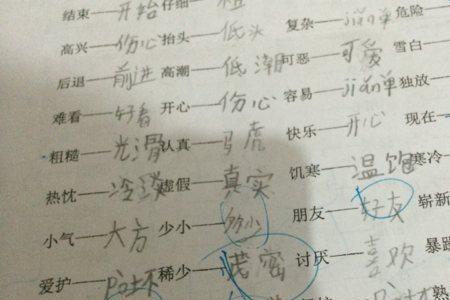 结束——开始 仔细——粗
高兴——伤心 抬头——低头 复杂——jiǎn单 危险—
后退——前进 高潮——低潮 可恶——可爱 雪白—
难看——好看 开心——伤心 容易——jiǎn单 独放—
粗糙——光滑 认真——马虎 快乐——开心 现在—
热忱——冷淡 虚假——真实 饥寒——温饱 寒冷—
小气——大方 少小—— 朋友——好友 崭新
爱护——pò坏 稀少——茂密 讨厌——喜欢 暴躁
坏 熟